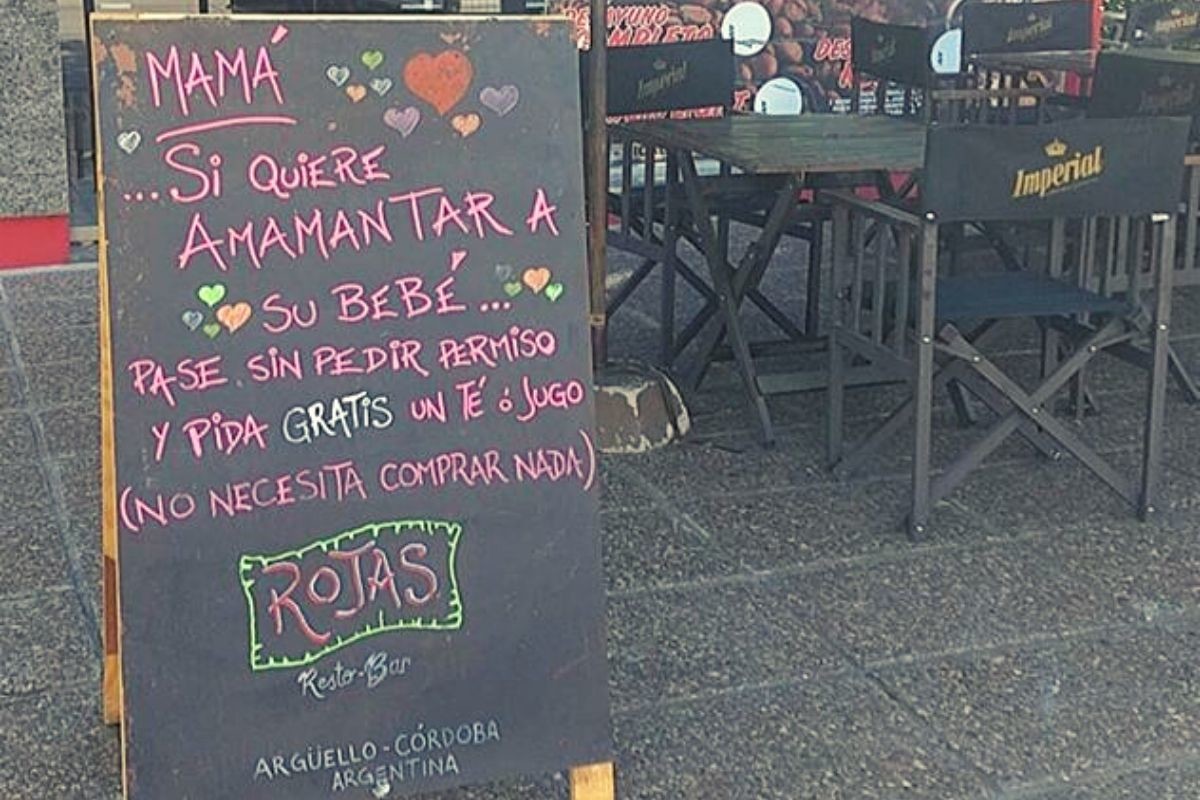 MAMÁ
...Si QUiERE
AMAMANTAR A
SU BEBÉ...
PASE. SiN PEDiR PERMiSO
Y PiDA GRATiS UN TÉ ó JUGO
(NO NECESiTA COMPRAR NADA)
ROJAS
Resto-Bar
ARGÜELLO - CÓRDOBA
ARGENTINA
COMPLETO
Imperial
Imperial
Imperial